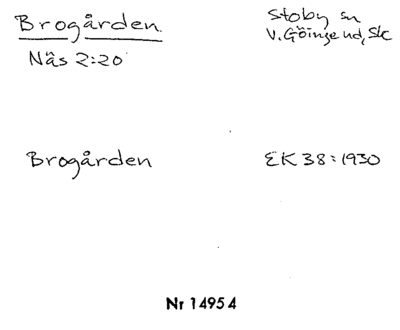 Brogården
Näs 2:20
Stoby sn
V. Göinge hd, Sk
Brogården
EK 38:1930
Nr 14954